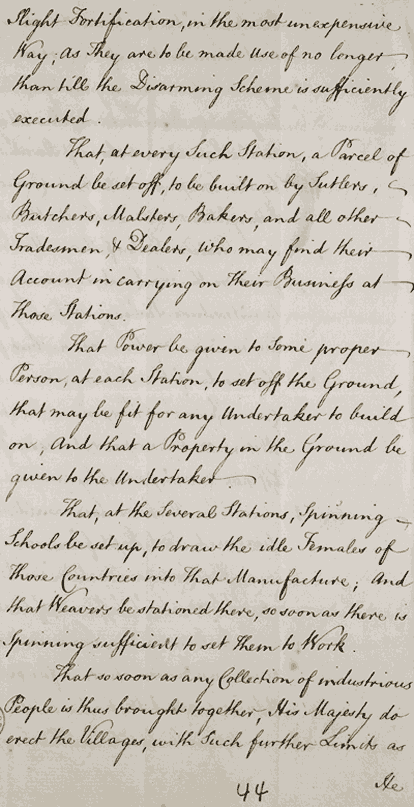 Slight Fortification, in the most unexpensive
Way; As They are to be made Use of no longer
than till the Disarming Scheme is sufficiently
executed.
That, at every Such Station, a Parcel of
Ground be set off, to be built on by Sutlers,
Butchers, Malsters, Bakers, and all other
Tradesmen, & Dealers, who may find their
Account in carrying on Their Business at
Those Stations.
That Power be given to Some proper
Person, at each Station, to set off the Ground,
that may be fit for any Undertaker to build
on, And that a Property in the Ground be
given to the Undertaker.
That, at the Several Stations, Spinning
Schools be set up, to draw the idle Females of
Those Countries into That Manufacture; And
that Weavers be stationed there, so soon as there is
Spinning sufficient to set Them to Work.
That so soon as any Collection of industrious
People is thus brought together, His Majesty do
erect the Villages, with Such further Limits as
He
44